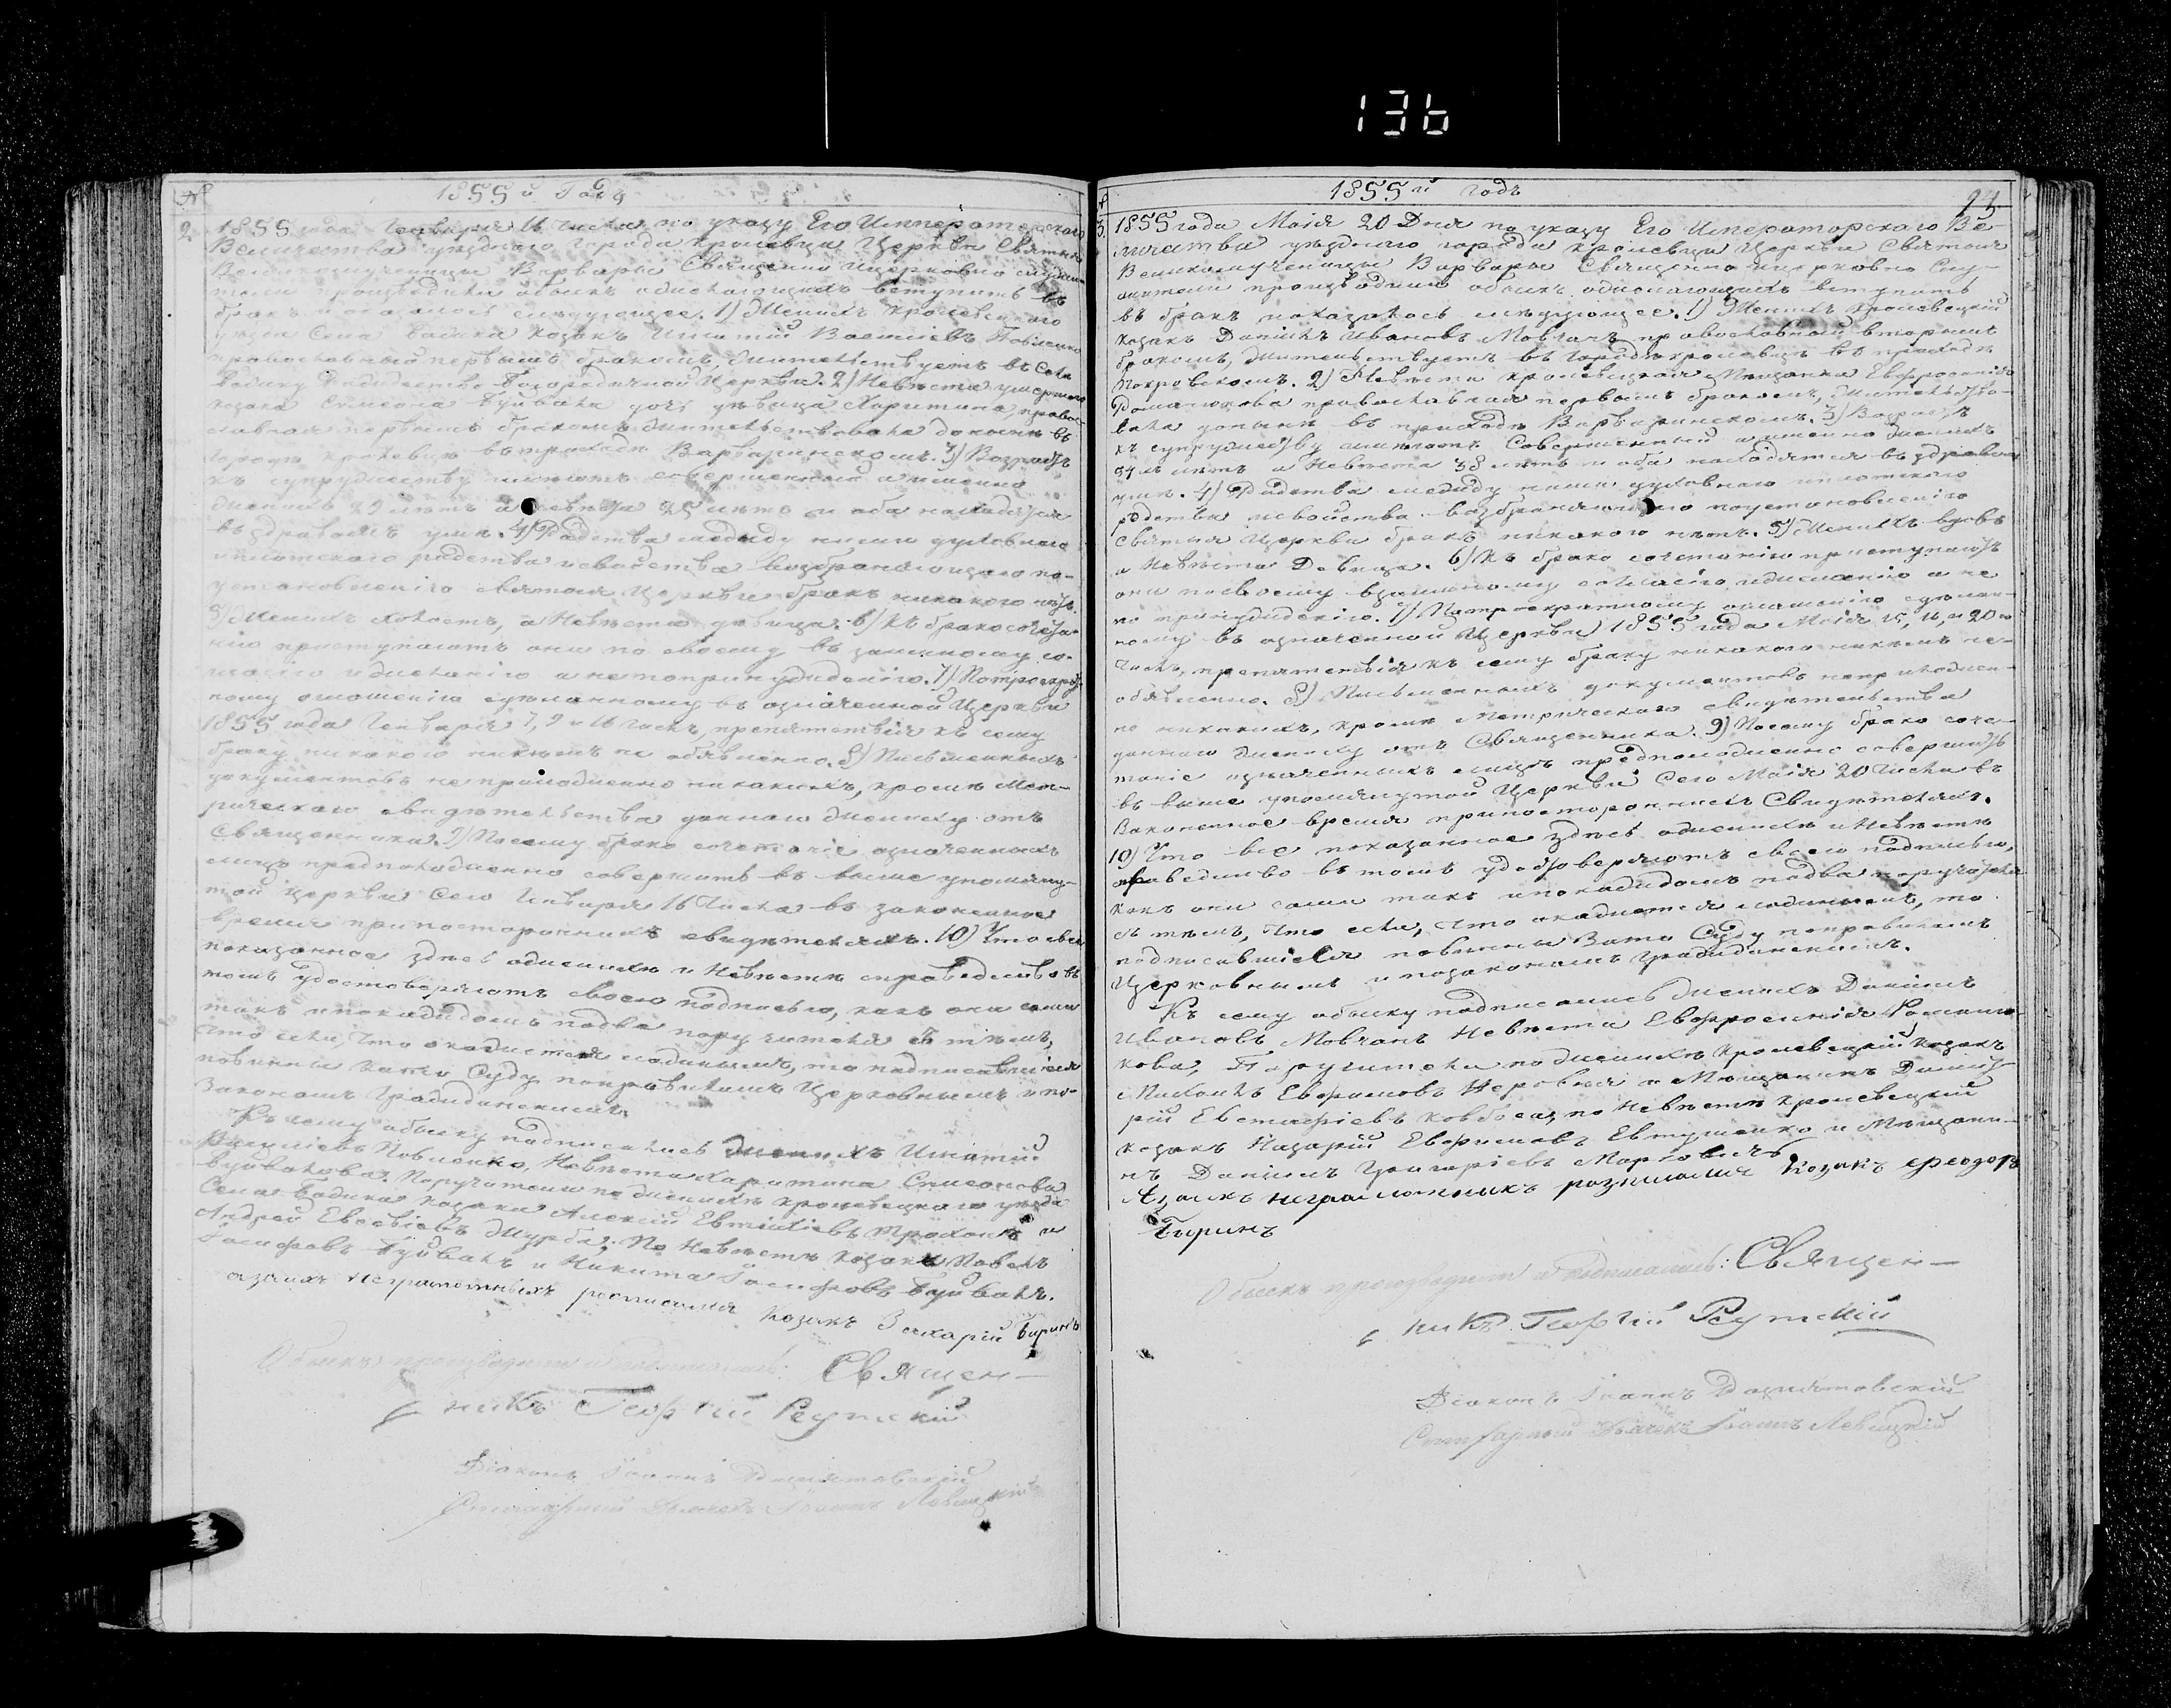 136
1855 й Годъ
№
2
1855 года Генваря 16 числа по указу Его Императорскаго
Величества уезднаго города Кролевца Церкви Святыя
Великомученицы Варвары Священно и церковно служи-
тели производили обыскъ о желающихъ вступить въ
бракъ и оказалось следующее. 1) Женихъ Кролевецкаго
уезда Села козакъ Игнатій Василіевъ Повленко
православный первымъ бракомъ, жительствуетъ въ Селе
Рождество Богородичной Церкви. 2) Невѣста умершаго
козака Симеона Буйвала дочь дѣвица Харитина, право-
славная первымъ бракомъ жительствовала донынѣ въ
городѣ Кролевцѣ въ приходѣ Варваринскомъ. 3) Возрастъ
къ супружеству имѣютъ совершенный а именно
женихъ 29 лѣтъ а невѣста 25 лѣтъ и оба находятся
въ здравомъ умѣ. 4) Родства между ними духовнаго
и плотскаго родства и свойства возбраняющаго по-
установленію святыя Церкви бракъ никакого нѣтъ.
5) Женихъ холостъ, а Невѣста дѣвица. 6) Къ бракосочета-
нію приступаютъ они по своему взаимному со-
гласію и желанію а не по принужденію. 7) По троекрат-
ному оглашенію сдѣланному въ означенной Церкви
1855 года Генваря 7, 9 и 16 числъ, препятствія къ сему
браку никакого никѣмъ не объявленно. 8) Письменныхъ
документовъ не приложенно никакихъ, кромѣ Мет-
рическаго свидѣтельства даннаго жениху отъ
Священника. 9) Посему брако сочетаніе означенныхъ
лицъ предположенно совершить въ выше упомяну-
той Церкви сего Генваря 16 числа въ законенное
время при постороннихъ свидѣтеляхъ. 10) Что все
показанное здѣсь о женихѣ и Невѣстѣ справедливо въ
томъ удостоверяютъ своею подписью, какъ они сами
такъ и по каждомъ по два поручителя съ тѣмъ,
что если, что окажется ложнымъ, то подписавшіеся
повинны Суду по правиламъ Церковнымъ и по-
Законамъ Гражданскимъ.
Къ сему обыску подписались Женихъ Игнатій
Василіевъ Повленко, Невѣста Харитина Симеонова
Буйвалова. Поручители по женихѣ кролевецкаго уѣзда
Села козаки Алексій Евтихіевъ и
Андрей Евсевіевъ Журба; По Невѣстѣ козаки Павелъ
Іосифовъ Буйвалъ и Никита Іосифовъ Буйвалъ.
а за нихъ неграмотныхъ росписался козакъ Захарій Биринъ
Обыскъ производили и подписались: Священ-
никъ Георгій Реутскій
Діаконъ Іоаннъ
Дьячекъ Іоаннъ Левицкій
1855 й годъ
№
3.
1855 года Маія 20 Дня по указу Его Императорскаго Ве-
личества уѣзднаго города Кролевца Церкви Святыя
Великомученицы Варвары Священно и церковно Слу-
жители производили обыскъ о желающихъ вступить
въ бракъ показалось следующее. 1) Женихъ Кролевецкій
козакъ Даніилъ Ивановъ Мовчанъ православный вторымъ
бракомъ, жительствуетъ въ городѣ Кролевцѣ въ приходѣ
Покровскомъ. 2) Невѣста кролевецкая Мѣщанка Евфросинія
Романюкова православная первымъ бракомъ, жительство-
вала донынѣ въ приходѣ Варваринскомъ. 3) Возрастъ
къ супружеству имѣютъ совершенный а именно женихъ
лѣтъ а Невѣста 38 лѣтъ и оба находятся въ здравомъ
умѣ. 4) Родства между ними духовнаго и плотскаго
родства и свойства возбраняющаго по установленію
святыя Церкви бракъ никакого нѣтъ. 5) Женихъ вдовъ
а Невѣста Девица. 6) Къ брако сочетанію приступаютъ
они по своему взаимному согласію и желанію а не
по принужденію. 7) По троекратному оглашенію сдѣлан-
ному въ означенной Церкви 1855 года Маія 15, и 20
числъ, препятствія къ сему браку никакого никѣмъ не-
объявленно. 8) Письменныхъ документовъ неприложен-
но никакихъ, кромѣ Метрическаго свидѣтельства
даннаго жениху отъ Священника. 9) Посему брако соче-
таніе означенныхъ лицъ предположенно совершить
въ выше упомянутой Церкви Сего Маія 20 числа въ
законенное время при постороннихъ Свидѣтеляхъ.
10) Что все показанное здѣсь о женихѣ и Невѣстѣ
справедливо въ томъ удостоверяютъ своею подписью,
какъ они сами такъ и по каждомъ по два поручителя
съ тѣмъ, что если, что окажется ложнымъ, то
подписавшіеся повинны Суду по правиламъ
Церковнымъ и по законамъ Гражданскимъ.
Къ сему обыску подписались Женихъ Даніилъ
Ивановъ Мовчанъ Невѣста Евфросинія Романю-
кова, Поручители по женихѣ кролевецкій козакъ
Михаилъ Ефимовъ и Мѣщанинъ Димит-
рій Евстафіевъ Ковбаса, по Невѣстѣ кролевецкій
козакъ Назарій Ефимовъ Евтушенко и Мѣщани-
нъ Даніилъ Григоріевъ
А за нихъ неграмотныхъ розписался козакъ Феодоръ
Биринъ
Обыскъ производили и подписались: Священ-
никъ Георгій Реутскій
Діаконъ Іоаннъ
Дьячекъ Іоаннъ Левицкій